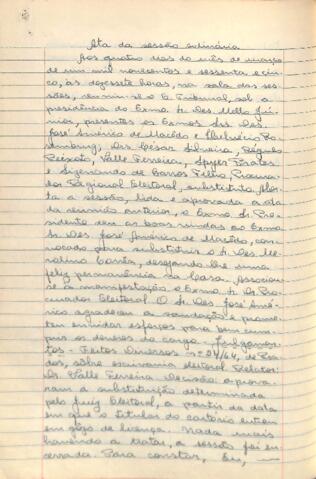 Ata da sessão ordinária
Aos quatro dias do mês de março
de um mil novecentos e sessenta e cin-
co, às dezessete horas, na sala das ses-
sões, reuniu-se o E. Tribunal, sob a
presidência do Exmo. Sr. Des. Mello Jú-
nior, presentes os Exmos. Srs. Des.
José Américo de Macêdo e
Drs. César Silveira,
Peixoto, Valle Ferreira, Spyer Prates
e de Barros Filho, Procura-
dor Regional Eleitoral, substituto. Aber-
ta a sessão, lida e aprovada a ata
da reunião anterior, o Exmo. Sr. Pre-
sidente deu as boas vindas ao Exmo.
Sr. Des. José Américo de Macêdo, con-
vocado para substituir o Sr. Des. Me-
rolino Corrêa, desejando-lhe uma
feliz permanência na Casa. Associou-
se à manifestação o Exmo. Sr. Dr. Pro-
curador Eleitoral. O Sr. Des. José Amé-
rico agradeceu a saudação e prome-
teu envidar esforços para bem cum-
prir os deveres do cargo. Julgamen-
tos - Feitos Diversos nº 24/64, de
sôbre escrivania eleitoral. Relator:
Dr. Valle Ferreira. Decisão: aprova-
ram a substituição determinada
pelo Juiz Eleitoral, a partir da data
em que o titular do cartório entrou
em gôzo de licença. Nada mais
havendo a tratar, a sessão foi en-
cerrada. Para constar, Eu,